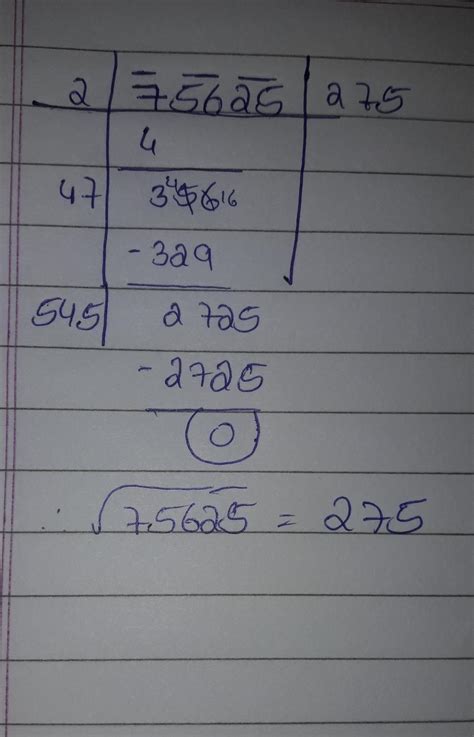 2 75625 275
4
47 3⁴5616
-329
545 2725
-2725
0
∴ √75625 = 275